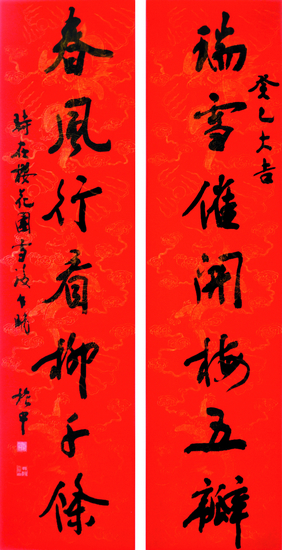 癸巳大吉
瑞雪催開梅五瓣
春風行看柳千條
時在櫻花園